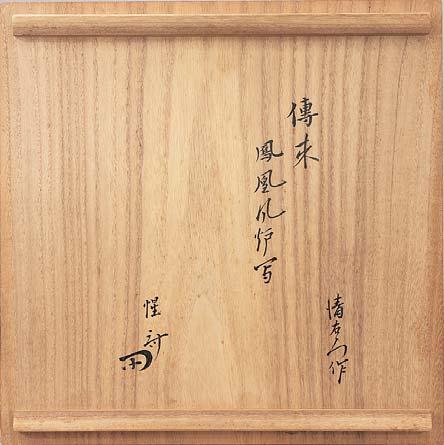 傳来
鳳凰風炉写
清右衛門作
惺斎